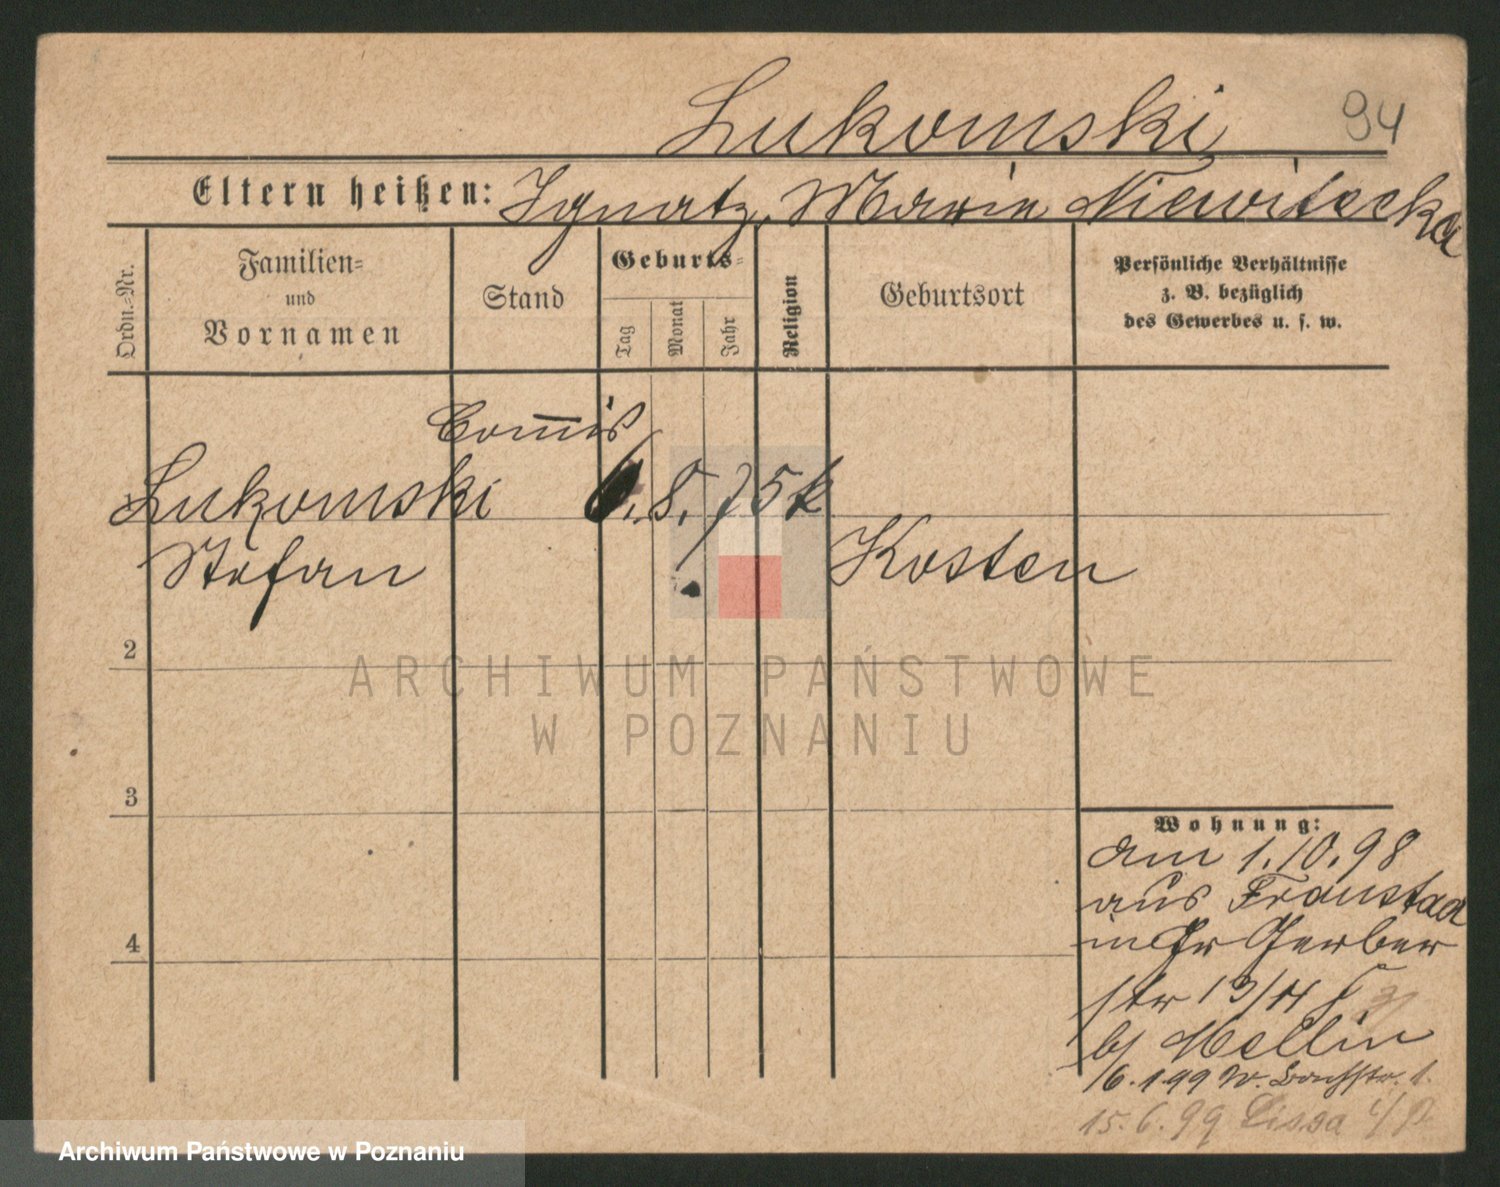 Lukomski 94
Eltern heißen: Ignatz, Marie Niewitecka
Ordn.-Nr.
Familien- und Vornamen
Stand
Geburts-
Tag
Monat
Jahr
Religion
Geburtsort
Persönliche Verhältnisse
z. B. bezüglich
des Gewerbes u. s. w.
Com̅is
Lukomski 6. 8. 75 k
Stefan Kosten
2
3
4
Wohnung:
am 1.10.98
aus Fraustad
in Gr Gerber
str 13/14
bj Mellin
15.6.99 Lissa i/P
ARCHIWUM PAŃSTWOWE
W POZNANIU
Archiwum Państwowe w Poznaniu